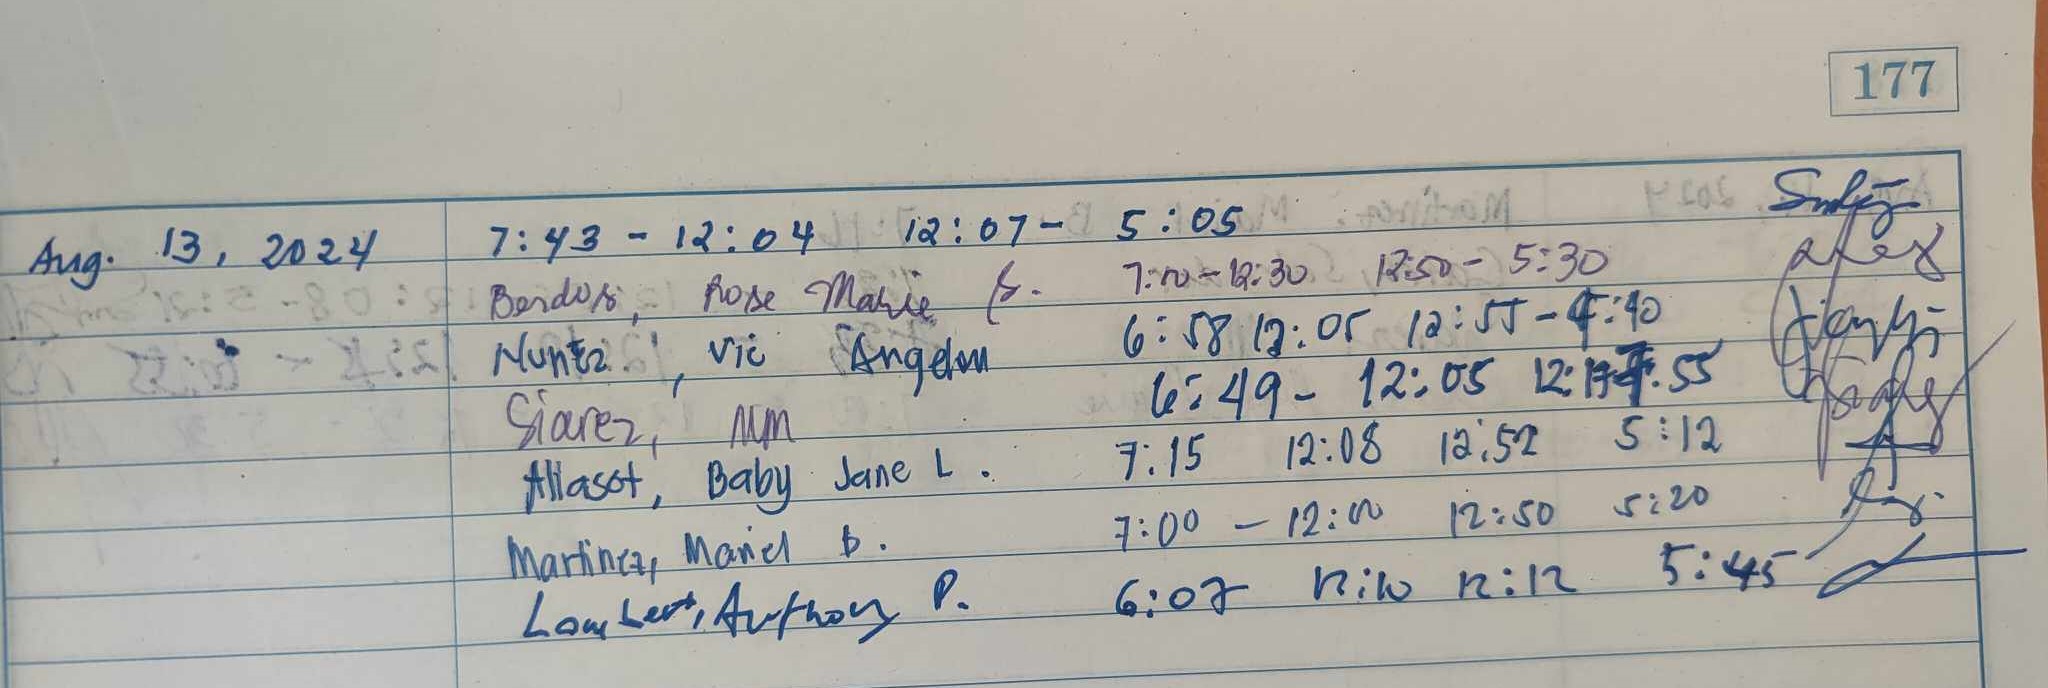 177
Aug. 13, 2024 7:43 - 12:04 12:07 - 5:05
Rose Marie 7:00 - 12:30 12:50 - 5:30
Nuñez, Vic Angelou 6:58 12:05 12:55 -
Siarez, MM 6:49 - 12:05
Aliasot, Baby Jane L. 7:15 12:08 12:52 5:12
Martinez, Mariel B. 7:00 - 12:00 12:50 5:20
Lambert, Anthony P. 6:07 12:10 12:12 5:45